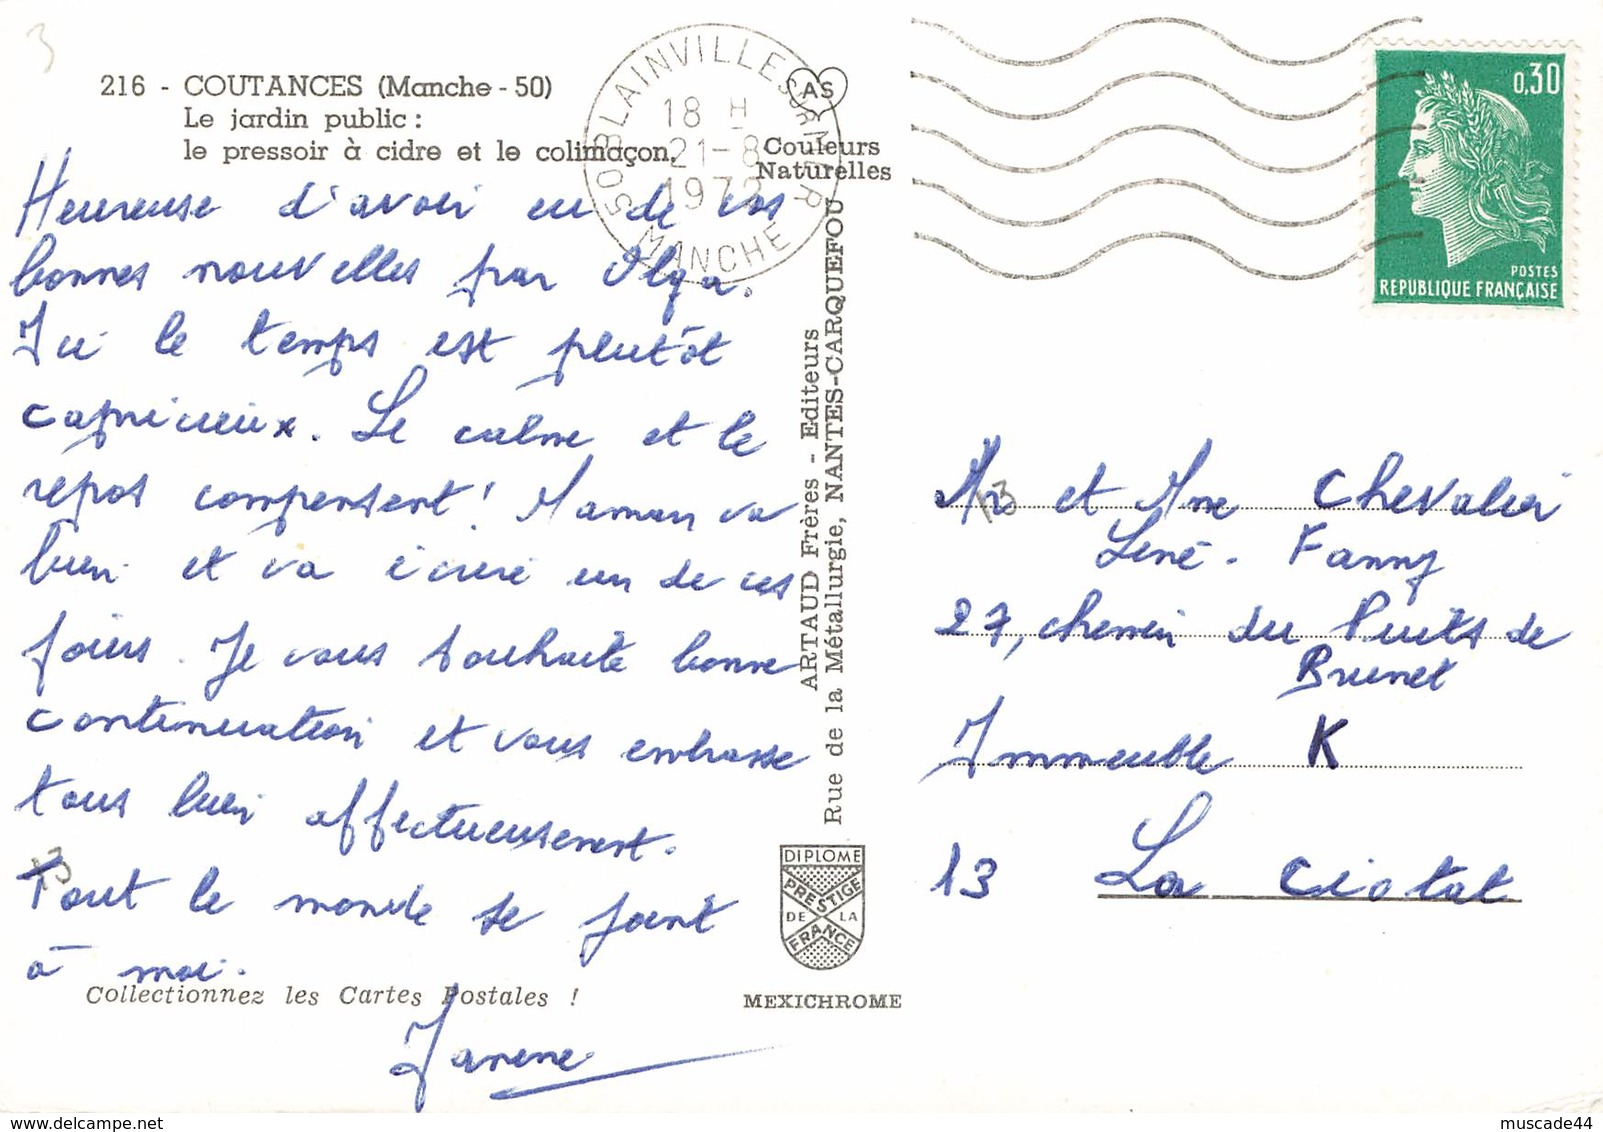 3
216 - COUTANCES (Manche - 50)
Le jardin public :
le pressoir à cidre et le colimaçon.
AS
Couleurs
Naturelles
50 BLAINVILLE SUR MER
18 H
21-8
1972
MANCHE
0,30
POSTES
REPUBLIQUE FRANÇAISE
Heureuse d'avoir eu de vos
bonnes nouvelles par Olga.
Ici le temps est plutôt
capricieux. Le calme et le
repos compensent! Maman va
bien et va écrire un de ces
jours. Je vous souhaite bonne
continuation et vous embrasse
tous bien affectueusement.
13
Tout le monde se joint
à moi.
Collectionnez les Cartes Postales !
Janine
ARTAUD Frères - Editeurs
Rue de la Métallurgie, NANTES-CARQUEFOU
DIPLOME
PRESTIGE
DE LA
FRANCE
MEXICHROME
Mr et Mme Chevalier
13
René - Fanny
27, chemin du Puits de
Brunet
Immeuble K
13 La Ciotat
muscade44